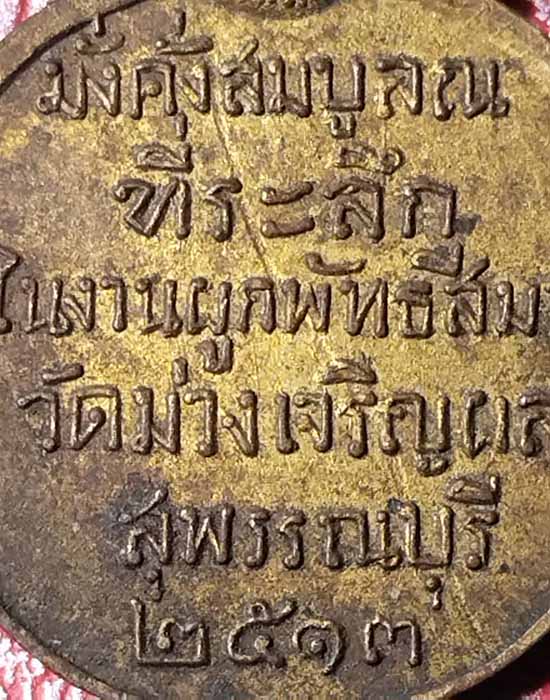 มั่งคั่งสมบูลณ
ที่ระลึก
ในงานผูกพัทธสีม
วัดม่วงเจริญผล
สุพรรณบุรี
๒๕๑๓